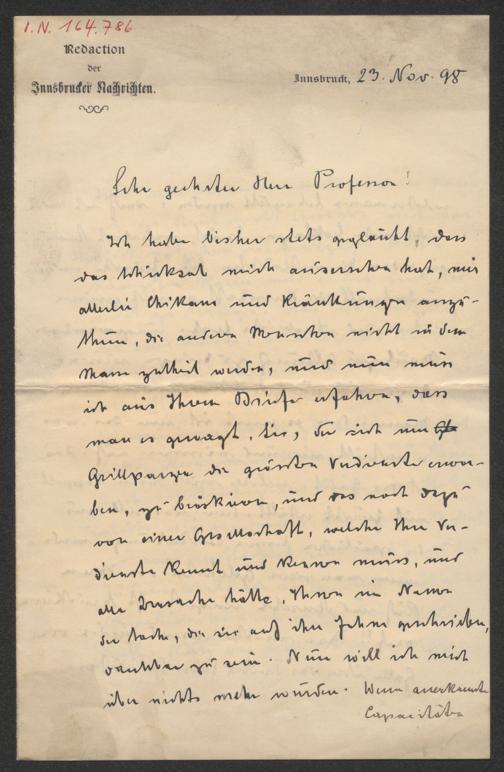 I.N. 164.786
Redaction
der
Innsbrucker Nachrichten.
Innsbruck, 23. Nov. 98
Sehr geehrter Herr Professor!
Ich habe bisher stets geglaubt, dass
das Schicksal mich ausersehen hat, mir
allerlei Chikane und Kränkungen anzu-
thun, die andern Menschen nicht in dem
Maße zutheil werden, und nun muss
ich aus Ihrem Briefe erfahren, dass
man es gewagt, Sie, der sich um
Grillparzer die grössten Verdienste erwor-
ben, zu brüskiren, und das noch dazu
von einer Gesellschaft, welche Ihre Ver-
dienste kennt und kennen muss, und
alle Ursache hätte, Ihnen im Namen
der Sache, die sie auf ihre Fahne geschrieben,
dankbar zu sein. Nun will ich mich
über nichts mehr wundern. Wenn anerkannte
Capacitäten